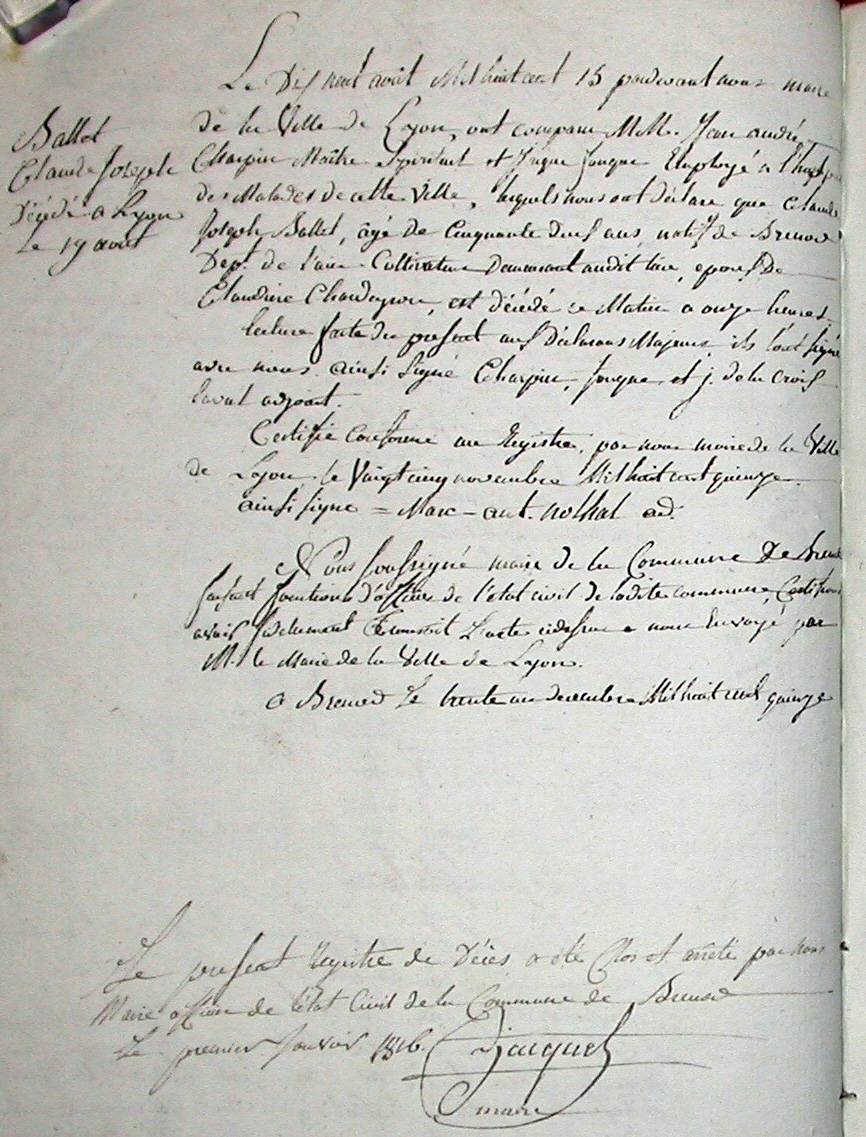 Ballet
Claude Joseph
Décédé a Lyon
le 19 aout
Le Dix neuf août Mil huit cent 15 pardevant nous maire
de la Ville de Lyon, ont comparu M.M. Jean andré
Charpin Maître Spirituel et Jouque Employé a l'hospice
des Malades de cette Ville, lesquels nous ont déclaré que Claude
Joseph Ballet, âgé de Cinquante Deux ans, natif de Brenod
Dept. de l'ain Cultivateur Demeurant audit lieu, epoux De
Claudine est décédé ce Matin a onze heures.
lecture faite du present aux Déclarans Majeurs ils l'ont signé
avec nous. ainsi Signé Charpin, Jouque, et j. de la Croix
laval adjoint.
Certifié Conforme au Registre, par nous maire de la Ville
de Lyon, le Vingt cinq novembre Mil huit cent quinze.
ainsi signe = Marc-ant. nolhat ad.
Nous soussigné maire de la Commune De Brenod
faisant fonctions d'officier de l'état civil de ladite commune, Certifions
avoir fidelement Transcrit L'acte cidessus a nous Envoyé par
M. le Maire de la Ville de Lyon.
a Brenod Le trente un decembre Mil huit cent quinze
Le present Registre de Décès a été Clos et arrêté par Nous
Maire officier de l'état Civil de la Commune de Brenod
Le premier Janvier 1816. Jacquet
maire